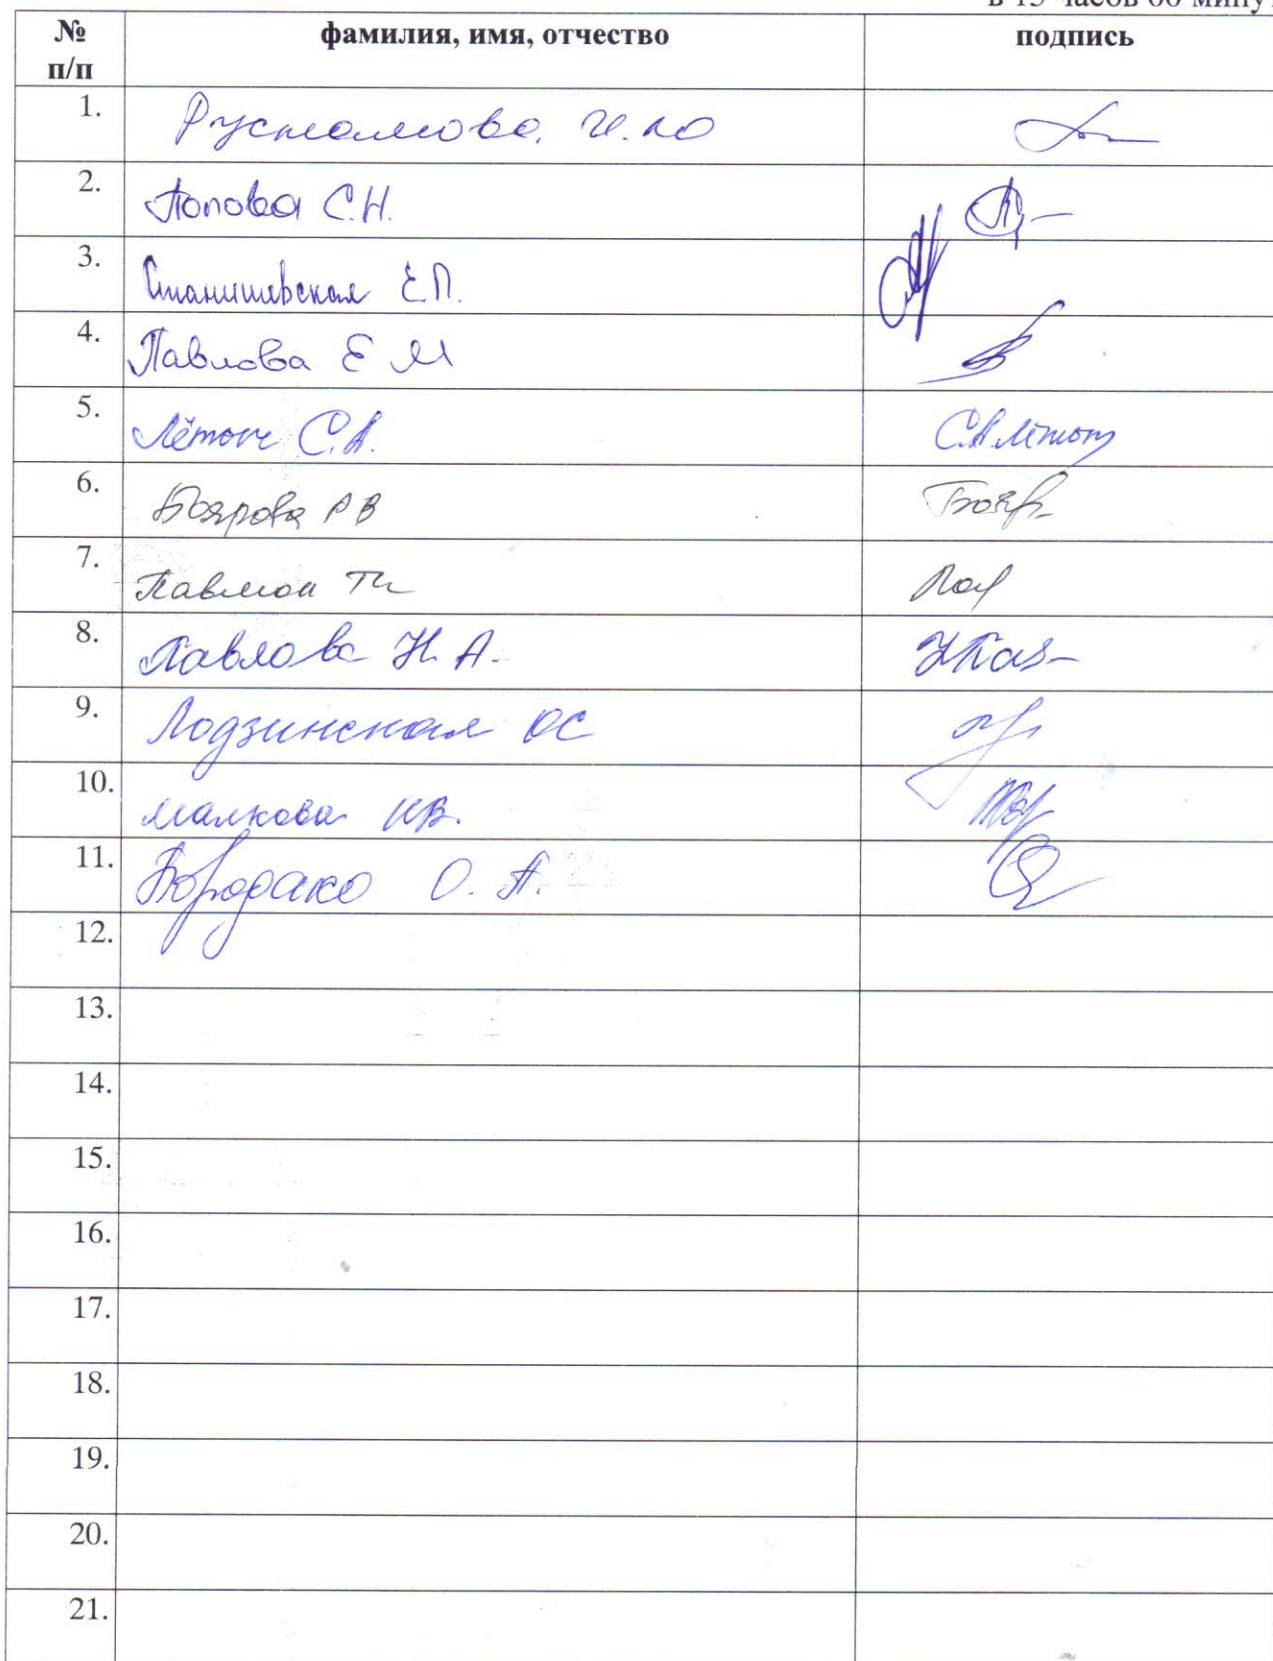 в 15 часов 00 минут
№ п/п фамилия, имя, отчество подпись
1. Рустамова И.Ю
2. Попова С.Н.
3. Станишевская Е.П.
4. Павлова Е М
5. Лётоп С.А. С.А.
6. Боярова РВ Бояр
7. Павлюк
8. Павлова Н.А. НПав
9. Лодзинская ОС
10. Малкова ИВ.
11. Бородако О.А.
12.
13.
14.
15.
16.
17.
18.
19.
20.
21.